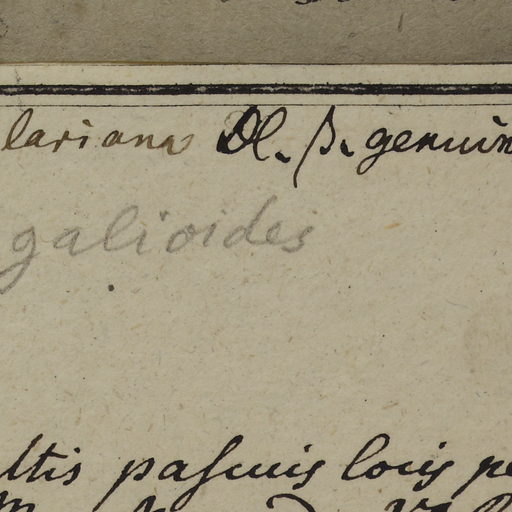 lariana Dl. β. genuin
galioides
ltis paſcuis locis pe